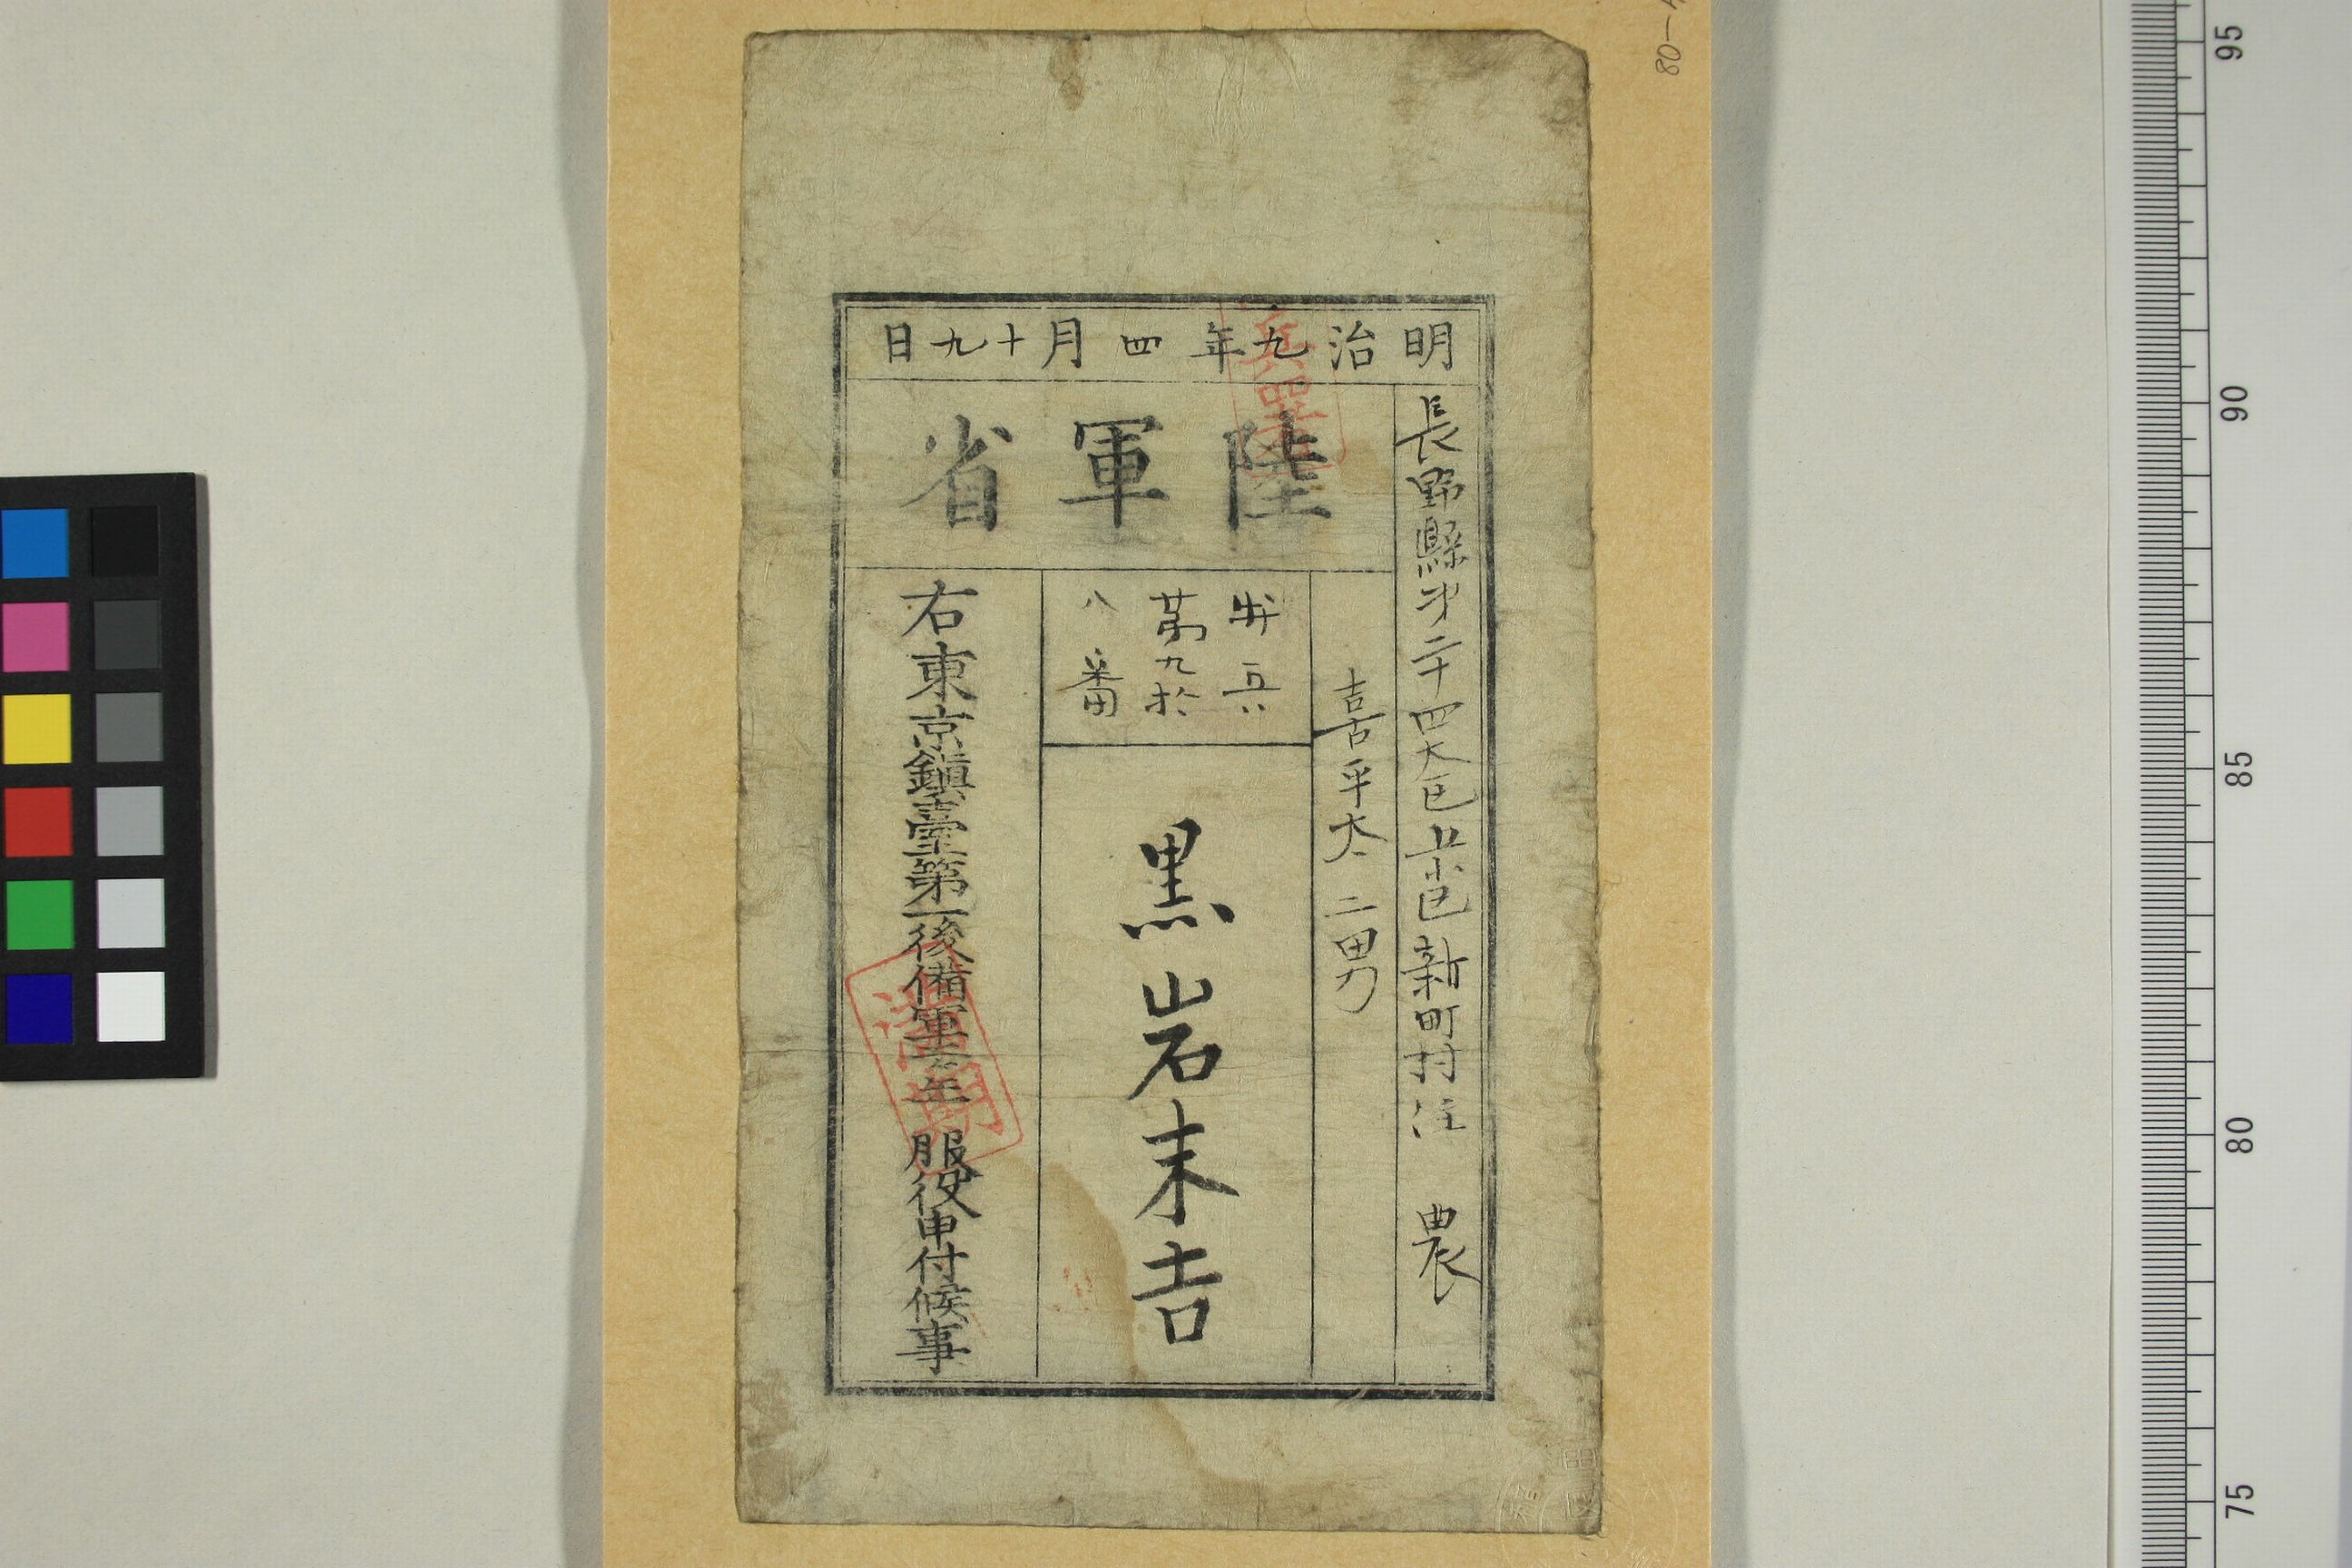 明治九年四月十九日
陸軍省
長野縣第二十四大区五小区新町村住 農
喜平太 二男
歩兵
第九拾
八番
黒岩末吉
右東京鎮臺第一後備軍
年 服役申付候事
満期
80-
95
90
85
80
75